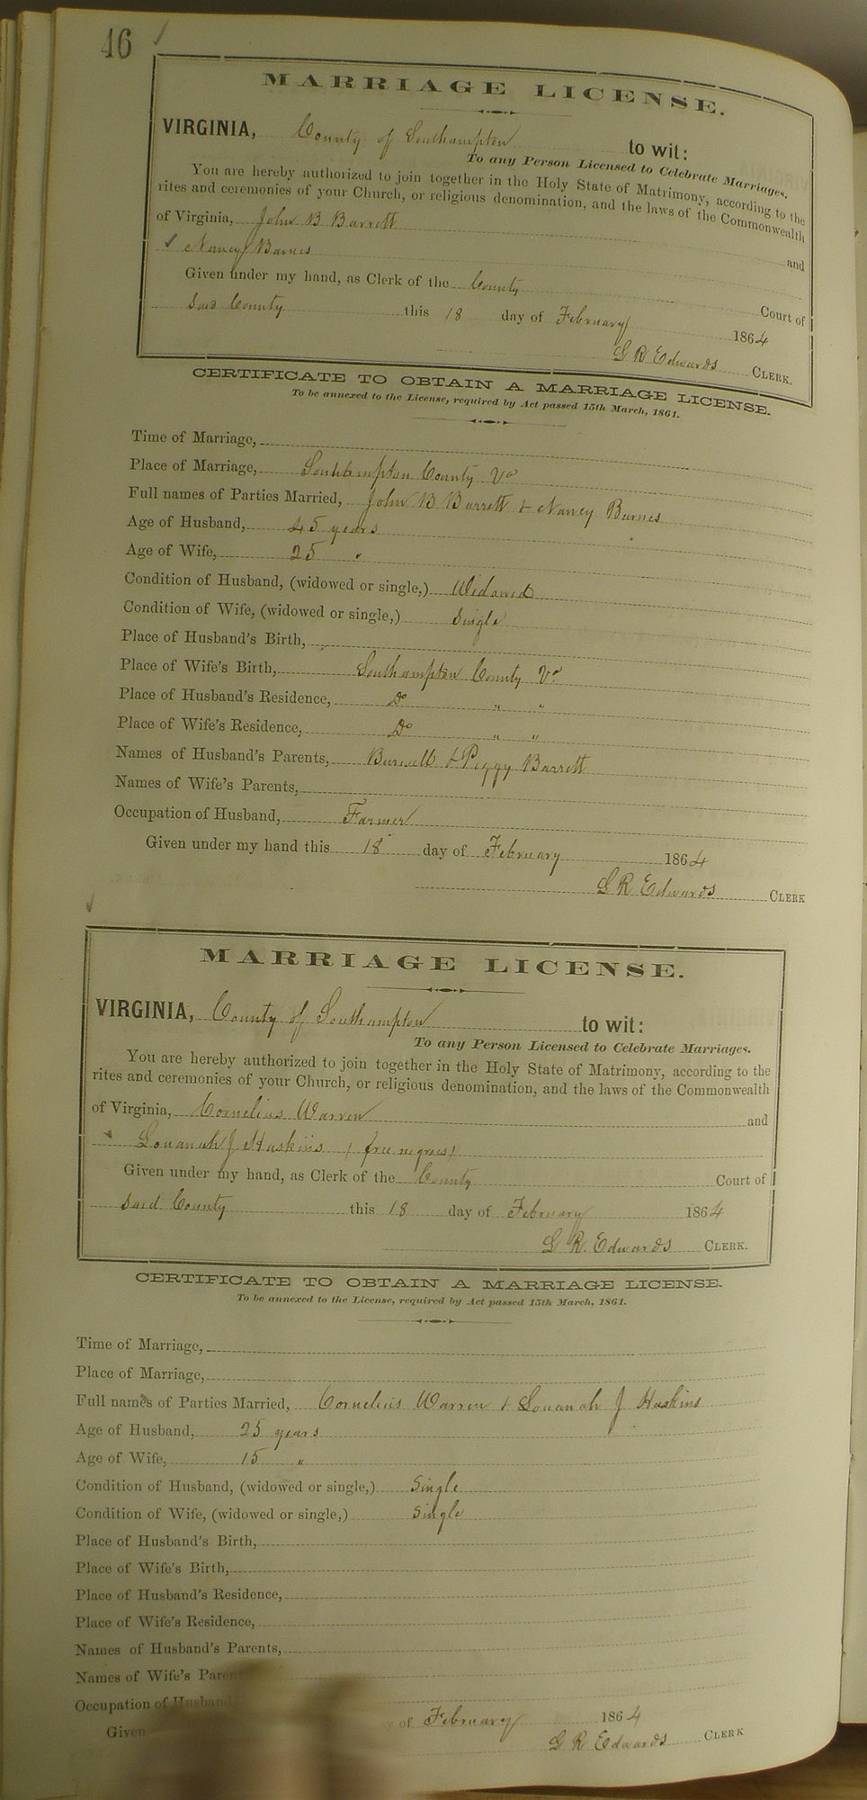 46
MARRIAGE LICENSE.
VIRGINIA, County of Southampton to wit:
To any Person Licensed to Celebrate Marriages.
You are hereby authorized to join together in the Holy State of Matrimony, according to the
rites and ceremonies of your Church, or religious denomination, and the laws of the Commonwealth
of Virginia, John B Barrett and
Nancy Barnes
Given under my hand, as Clerk of the County Court of
Said County this 18 day of February 1864
G R Edwards CLERK.
CERTIFICATE TO OBTAIN A MARRIAGE LICENSE.
To be annexed to the License, required by Act passed 15th March, 1861.
Time of Marriage,
Place of Marriage, Southampton County Va
Full names of Parties Married, John B Barrett & Nancy Barnes
Age of Husband, 45 years
Age of Wife, 25 "
Condition of Husband, (widowed or single,) Widowed
Condition of Wife, (widowed or single,) Single
Place of Husband's Birth,
Place of Wife's Birth, Southampton County Va
Place of Husband's Residence, Do " "
Place of Wife's Residence, Do " "
Names of Husband's Parents, Burwell & Peggy Barrett
Names of Wife's Parents,
Occupation of Husband, Farmer
Given under my hand this 18 day of February 1864
G R Edwards CLERK
MARRIAGE LICENSE.
VIRGINIA, County of Southampton to wit:
To any Person Licensed to Celebrate Marriages.
You are hereby authorized to join together in the Holy State of Matrimony, according to the
rites and ceremonies of your Church, or religious denomination, and the laws of the Commonwealth
of Virginia, Cornelius Warren and
Louanah J Haskins (free negroes)
Given under my hand, as Clerk of the County Court of
Said County this 18 day of February 1864
G R. Edwards CLERK.
CERTIFICATE TO OBTAIN A MARRIAGE LICENSE.
To be annexed to the License, required by Act passed 15th March, 1861.
Time of Marriage,
Place of Marriage,
Full names of Parties Married, Cornelius Warren & Louanah J Haskins
Age of Husband, 25 years
Age of Wife, 15 "
Condition of Husband, (widowed or single,) Single
Condition of Wife, (widowed or single,) Single
Place of Husband's Birth,
Place of Wife's Birth,
Place of Husband's Residence,
Place of Wife's Residence,
Names of Husband's Parents,
Names of Wife's
Occupation of Husband
Given of February 1864
G R Edwards CLERK